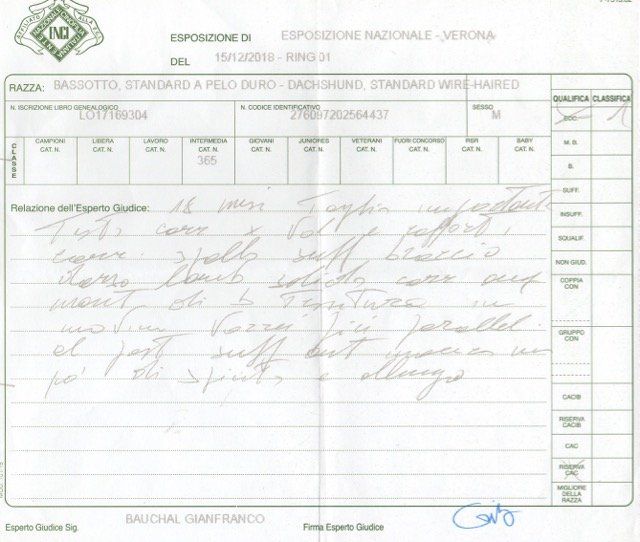 AFFILIATO ALLA F.C.I.
ENCI
ESPOSIZIONE DI ESPOSIZIONE NAZIONALE - VERONA
DEL 15/12/2018 - RING 01
RAZZA: BASSOTTO, STANDARD A PELO DURO - DACHSHUND, STANDARD WIRE-HAIRED
QUALIFICA CLASSIFICA
N. ISCRIZIONE LIBRO GENEALOGICO N. CODICE IDENTIFICATIVO SESSO
LO17169304 276097202564437 M
ECC. 1
CLASSE CAMPIONI CAT. N. LIBERA CAT. N. LAVORO CAT. N. INTERMEDIA CAT. N. GIOVANI CAT. N. JUNIORES CAT. N. VETERANI CAT. N. FUORI CONCORSO CAT. N. RSR CAT. N. BABY CAT. N.
365
M. B.
B.
SUFF.
INSUFF.
SQUALIF.
NON GIUD.
COPPIA CON
GRUPPO CON
CACIB
RISERVA CACIB
CAC
RISERVA CAC
MIGLIORE DELLA RAZZA
Relazione dell'Esperto Giudice: 18 mesi Taglia importante
Testa corr x Vol e rapporti,
corr. spalla suff braccio
dorso lomb solido corr
mont di b Tessitura in
movim Vorrei più parallel.
al post suff ant manca un
pò di spinta e allungo
Esperto Giudice Sig. BAUCHAL GIANFRANCO Firma Esperto Giudice